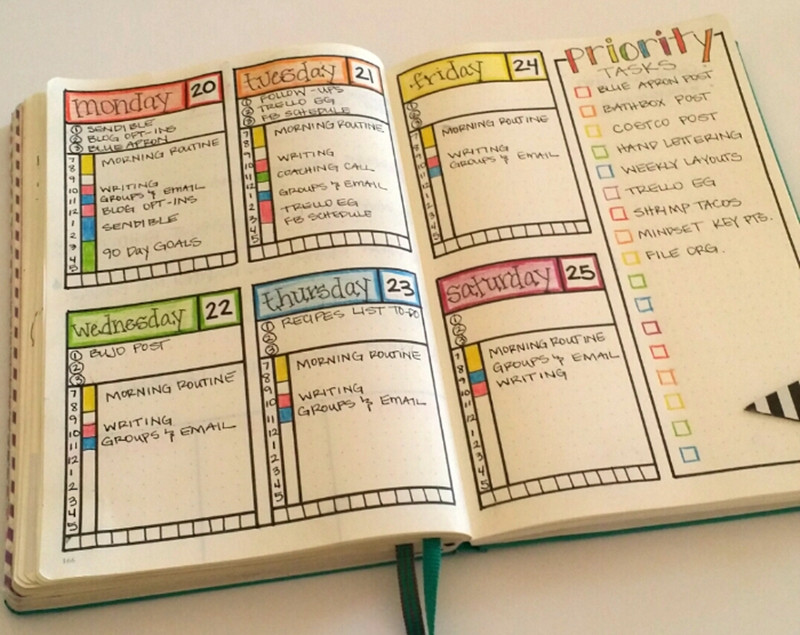 monday 20
① SENDIBLE
② BLOG OPT-INS
③ BLUE APRON
7
8
9
10
11
12
1
2
3
4
5
MORNING ROUTINE
WRITING
GROUPS & EMAIL
BLOG OPT-INS
SENDIBLE
90 DAY GOALS
tuesday 21
① FOLLOW-UPS
② TRELLO EG
③ FB SCHEDULE
7
8
9
10
11
12
1
2
3
4
5
MORNING ROUTINE
WRITING
COACHING CALL
GROUPS & EMAIL
TRELLO EG
FB SCHEDULE
wednesday 22
① BUJO POST
②
③
7
8
9
10
11
12
1
2
3
4
5
MORNING ROUTINE
WRITING
GROUPS & EMAIL
thursday 23
① RECIPES LIST TO-DO
②
③
7
8
9
10
11
12
1
2
3
4
5
MORNING ROUTINE
WRITING
GROUPS & EMAIL
friday 24
①
②
③
7
8
9
10
11
12
1
2
3
4
5
MORNING ROUTINE
WRITING
GROUPS & EMAIL
saturday 25
①
②
③
7
8
9
10
11
12
1
2
3
4
5
MORNING ROUTINE
GROUPS & EMAIL
WRITING
priority!
TASKS
BLUE APRON POST
BATHBOX POST
COSTCO POST
HAND LETTERING
WEEKLY LAYOUTS
TRELLO EG
SHRIMP TACOS
MINDSET KEY PTS.
FILE ORG.